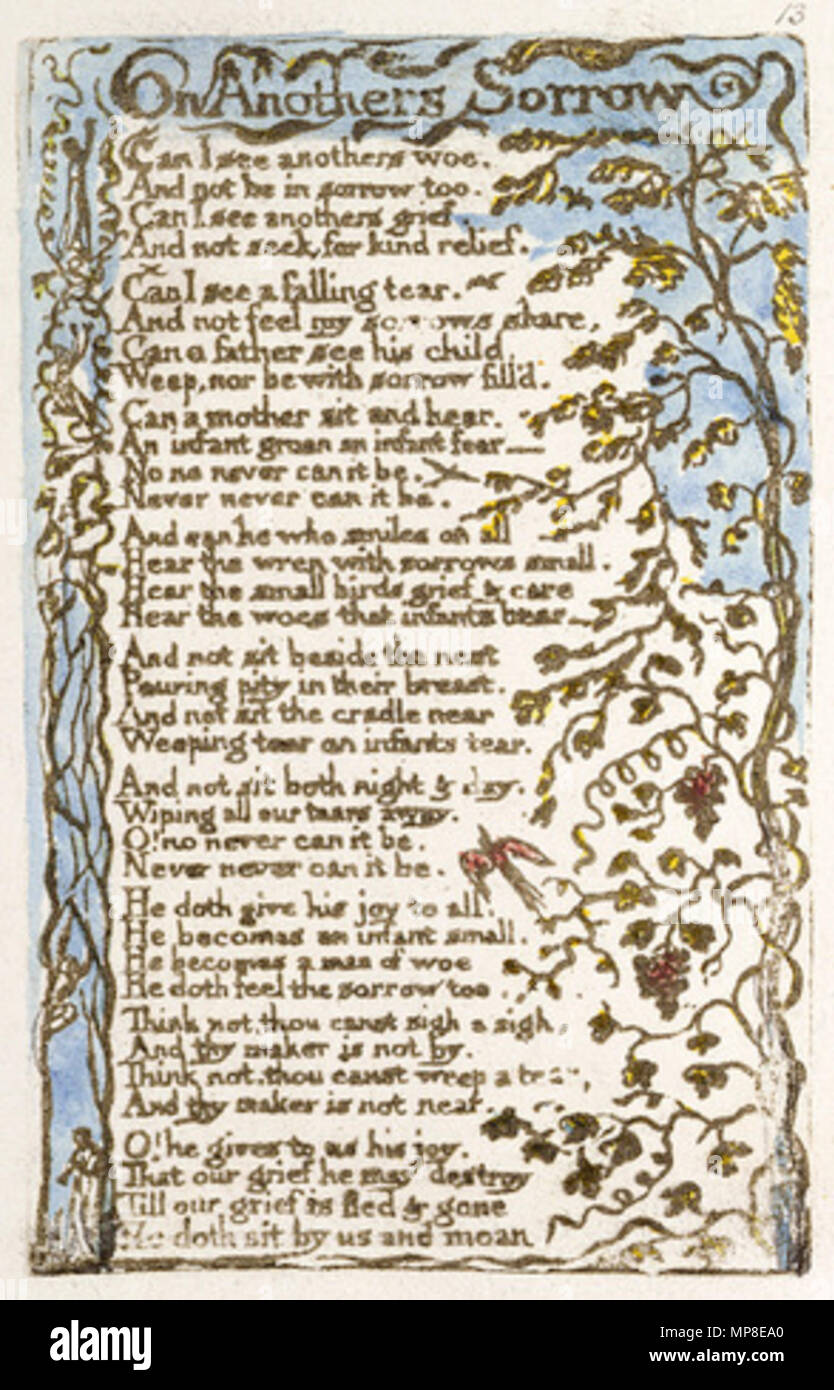 13
On Anothers Sorrow
Can I see anothers woe.
And not be in sorrow too.
Can I see anothers grief
And not seek for kind relief.
Can I see a falling tear.
And not feel my sorrows share,
Can a father see his child
Weep, nor be with sorrow fill'd.
Can a mother sit and hear.
An infant groan an infant fear
No no never can it be.
Never never can it be.
And can he who smiles on all
Hear the wren with sorrows small.
Hear the small birds grief & care
Hear the woes that infants bear
And not sit beside the nest
Pouring pity in their breast.
And not sit the cradle near
Weeping tear on infants tear.
And not sit both night & day.
Wiping all our tears away.
O! no never can it be.
Never never can it be.
He doth give his joy to all.
He becomes an infant small.
He becomes a man of woe
He doth feel the sorrow too.
Think not, thou canst sigh a sigh
And thy maker is not by.
Think not, thou canst weep a tear,
And thy maker is not near.
O! he gives to us his joy.
That our grief he may destroy
Till our grief is fled & gone
He doth sit by us and moan
alamy
Image ID: MP8EA0
www.alamy.com